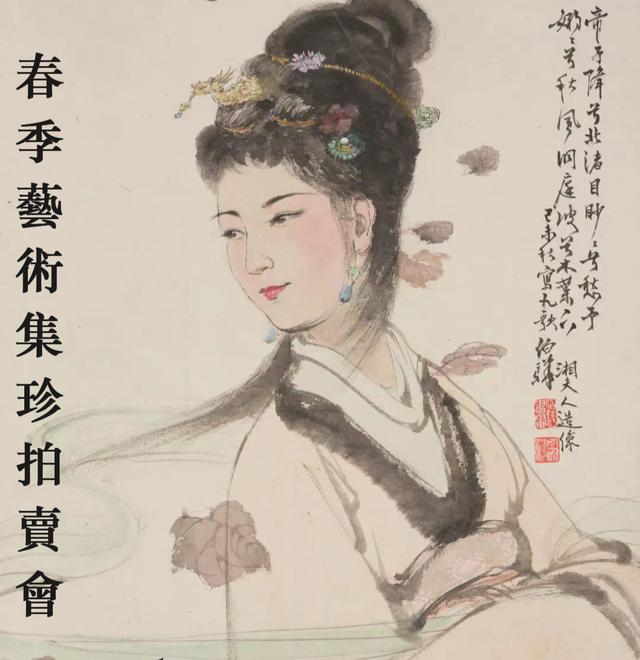 帝子降兮北渚目眇〻兮愁予
嫋〻兮秋風洞庭波兮木葉下
湘夫人造像
己未秋寫九歌伯驊
春季藝術集珍拍賣會